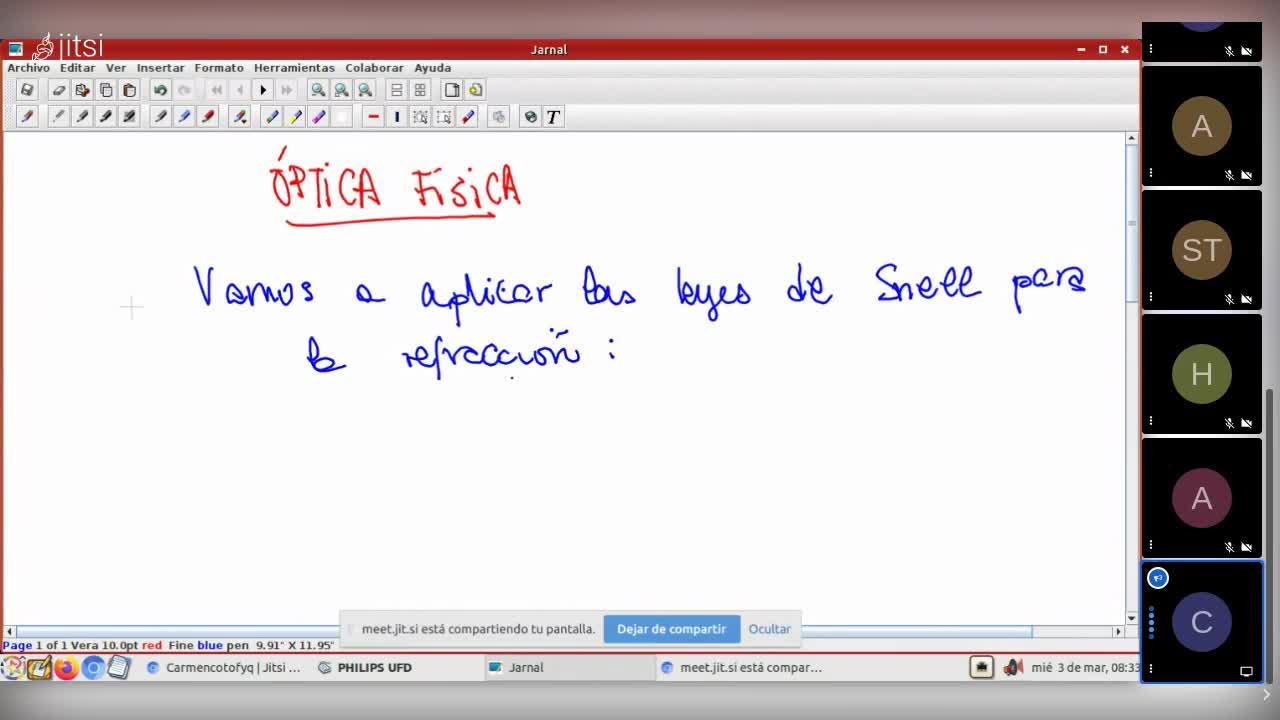 jitsi
Jarnal
Archivo Editar Ver Insertar Formato Herramientas Colaborar Ayuda
T
ÓPTICA FISICA
Vamos a aplicar las leyes de Snell para
la refracción :
A
ST
H
A
C
meet.jit.si está compartiendo tu pantalla. Dejar de compartir Ocultar
Page 1 of 1 Vera 10.0pt red Fine blue pen 9.91" X 11.95"
Carmencotofyq | Jitsi ... PHILIPS UFD Jarnal meet.jit.si está compar... mié 3 de mar, 08:33